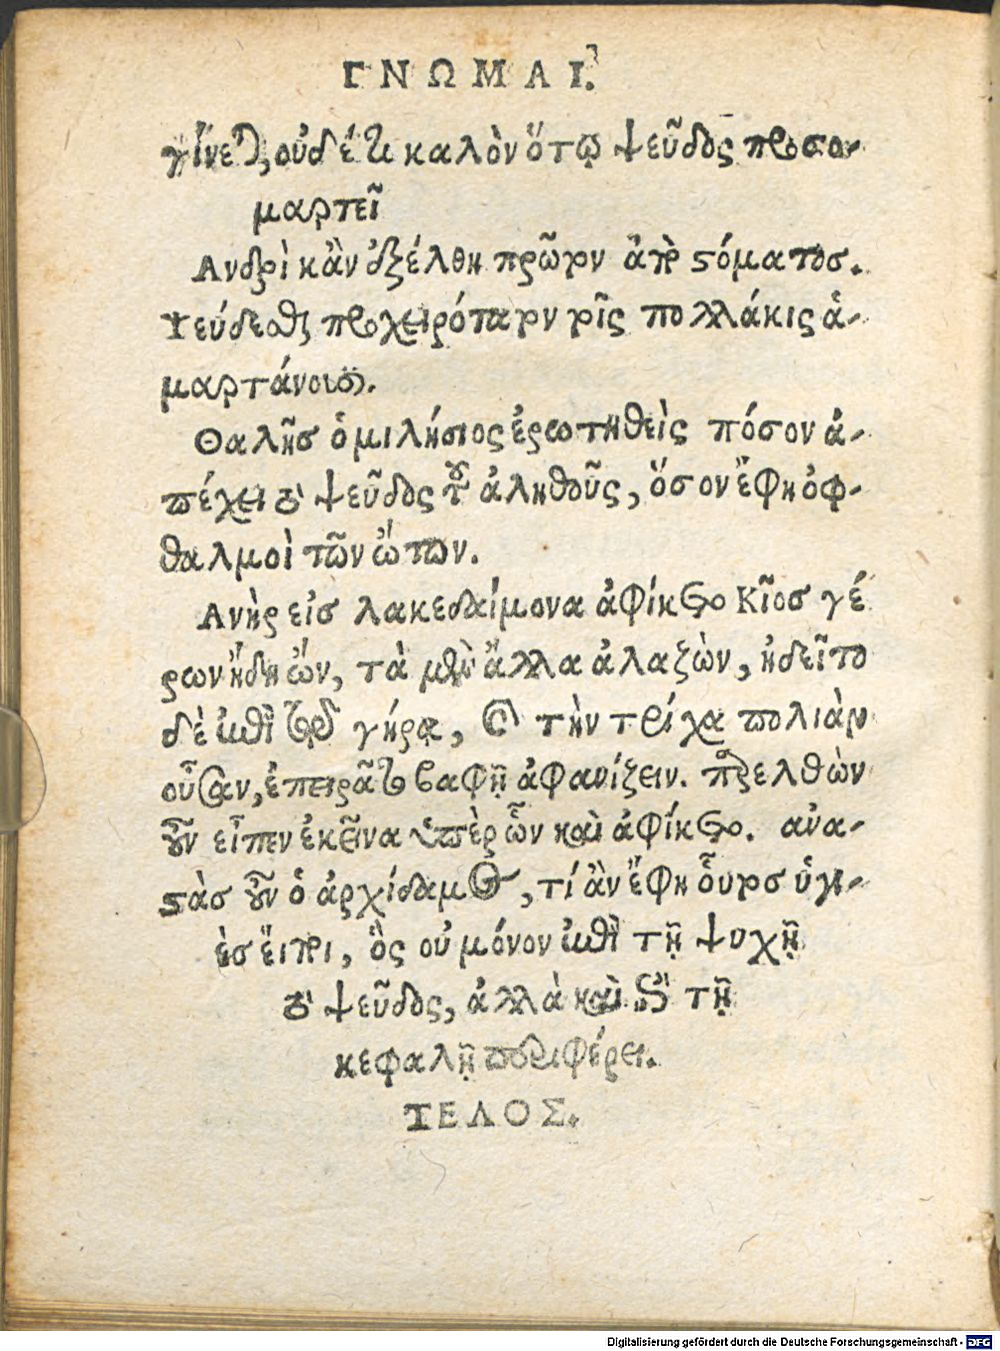 ΓΝΩΜΑΙ.
γίνεται, οὐδέ τι καλὸν ὅτῳ ψεῦδος προσο-
μαρτεῖ
Ανδρὶ κἂν ἐξέλθη πρῶτον ἀπὸ στόματος.
Ψεύδεσθαι προχειρότατον τοῖς πολλάκις ἁ-
μαρτάνουσι.
Θαλῆσ ὁ μιλήσιος ἐρωτηθεὶς πόσον ἀ-
πέχει τὸ ψεῦδος τοῦ ἀληθοῦς, ὅσον ἔφη ὀφ-
θαλμοὶ τῶν ὤτων.
Ανὴρ εἰσ λακεδαίμονα ἀφίκετο Κῖοσ γέ
ρων ἤδη ὤν, τὰ μὲν ἄλλα ἀλαζὼν, ἠδεῖτο
δὲ ἐπὶ τῷ γήρᾳ, καὶ τὴν τρίχα πολιὰν
οὖσαν, ἐπειρᾶτο βαφῇ ἀφανίζειν. παρελθὼν
οὖν εἶπεν ἐκεῖνα ὑπὲρ ὧν καὶ ἀφίκετο. ἀνα-
στὰσ οὖν ὁ ἀρχίδαμος, τί ἂν ἔφη οὗτοσ ὑγι-
ὲσ εἴποι, ὃς οὐ μόνον ἐπὶ τῇ ψυχῇ
τὸ ψεῦδος, ἀλλὰ καὶ ἐπὶ τῇ
κεφαλῇ περιφέρει.
ΤΕΛΟΣ.
Digitalisierung gefördert durch die Deutsche Forschungsgemeinschaft - DFG